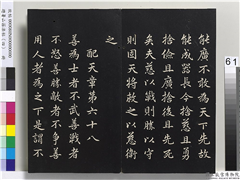 能廣不敢為天下先故
能成器長今捨慈且勇
捨儉且廣捨後且先死
矣夫慈以戰則勝以守
則固天將救之以慈衛
之
配天章第六十八
善為士者不武善戰者
不怒善勝敵者不爭善
用人者為之下是謂不
61